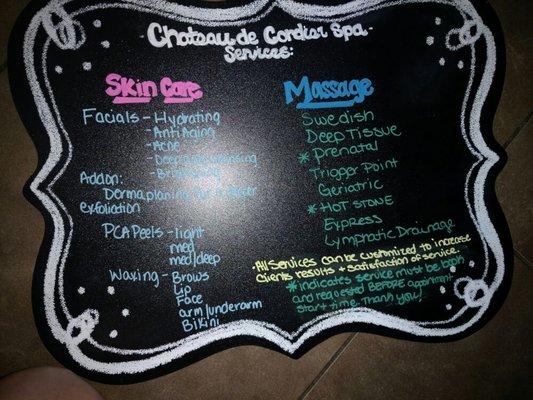 Chateau de Cordier Spa
Services:
Skin Care
Facials - Hydrating
- Anti Aging
- Acne
- Deep cleansing
- Brightening
Add on:
Dermaplaning for
exfoliation
PCA Peels - light
med
med/deep
Waxing - Brows
Lip
Face
arm/underarm
Bikini
Massage
Swedish
Deep Tissue
* prenatal
Trigger Point
Geriatric
* HOT STONE
Express
Lymphatic Drainage
• All Services can be customized to increase
clients results + satisfaction of service.
* indicates service must be
and requested BEFORE appointment
start time. Thank you!